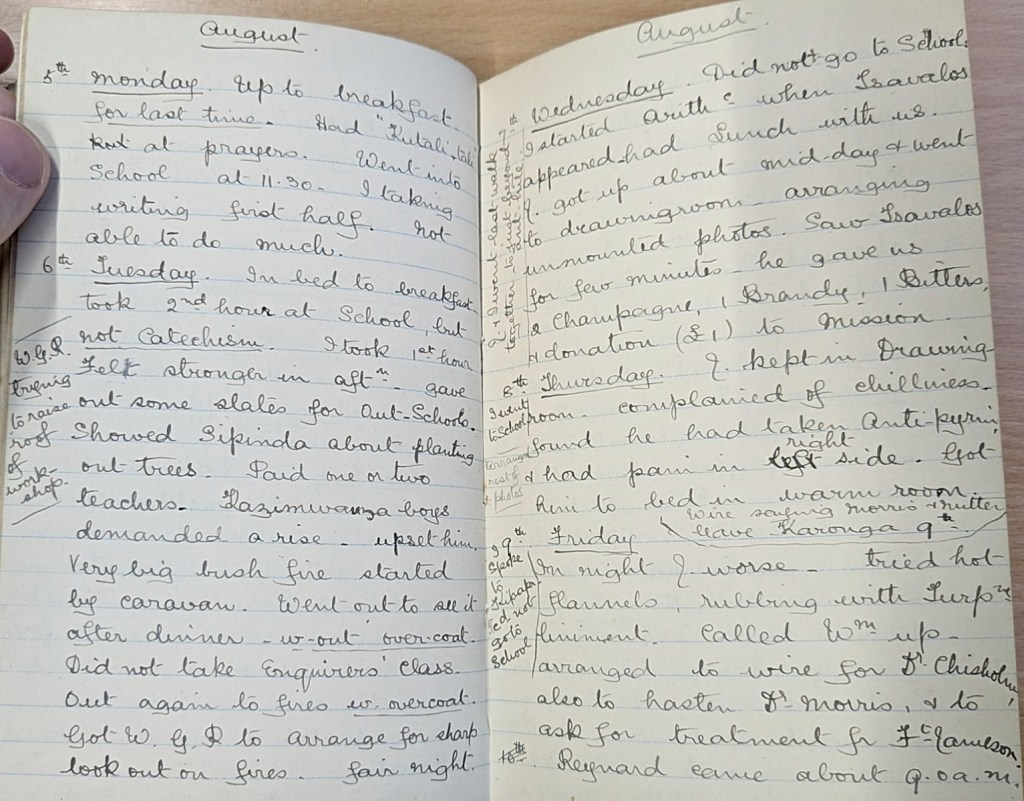 August.
5th Monday. Up to breakfast.
for last time. Had "Kulali-tali"
at prayers. Went into
School at 11.30 - I taking
writing first half. Not
able to do much.
6th Tuesday. In bed to breakfast
took 2nd hour at School, but
not Catechism. I took 1st hour
Felt stronger in aftn - gave
out some slates for Out-Schools.
Showed Sipinda about planting
out trees. Paid one or two
teachers. Kazimwanga boys
demanded a rise - upset him.
Very big bush fire started
by caravan. Went out to see it
after dinner - w-out over-coat.
Did not take Enquirers' Class.
Out again to fires w. overcoat.
Got W. G. R to arrange for sharp
look out on fires. Fair night.
W.G.R.
trying
to raise
roof
of
work-
shop.
August.
7th Wednesday. Did not go to School.
I started arithc when Tsavalos
appeared - had Lunch with us.
J. got up about mid-day & went
to drawingroom - arranging
unmounted photos. Saw Tsavalos
for few minutes - he gave us
2 Champagne, 1 Brandy, 1 Bitters,
& donation (£1) to Mission.
J & I went last walk
together to just beyond
8th Thursday. J. kept in Drawing-
room - complained of chilliness.
found he had taken Anti-pyrin,
& had pain in left right side. Got
him to bed in warm room
Wire saying Morris & Rutter
leave Karonga 9th.
I went
to School
& arranged
rest of
photos
9th Friday
In night J worse - tried hot
flannels, rubbing with Turpne
liniment. Called Wm up -
arranged to wire for Dr Chisholm,
also to hasten Dr Morris, & to
ask for treatment fr Ft Jameson.
10th Reynard came about 9.0 a.m.
Spoke
to
did not
go to
School